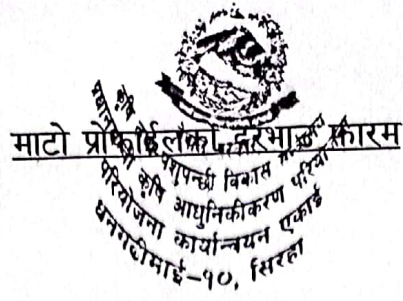 माटो प्रोफाईलको दरभाउ फारम
कृषि
पशुपन्छी विकास
कृषि आधुनिकीकरण परियोजना
परियोजना कार्यान्वयन एकाई
धनगढीमाई-१०, सिरहा